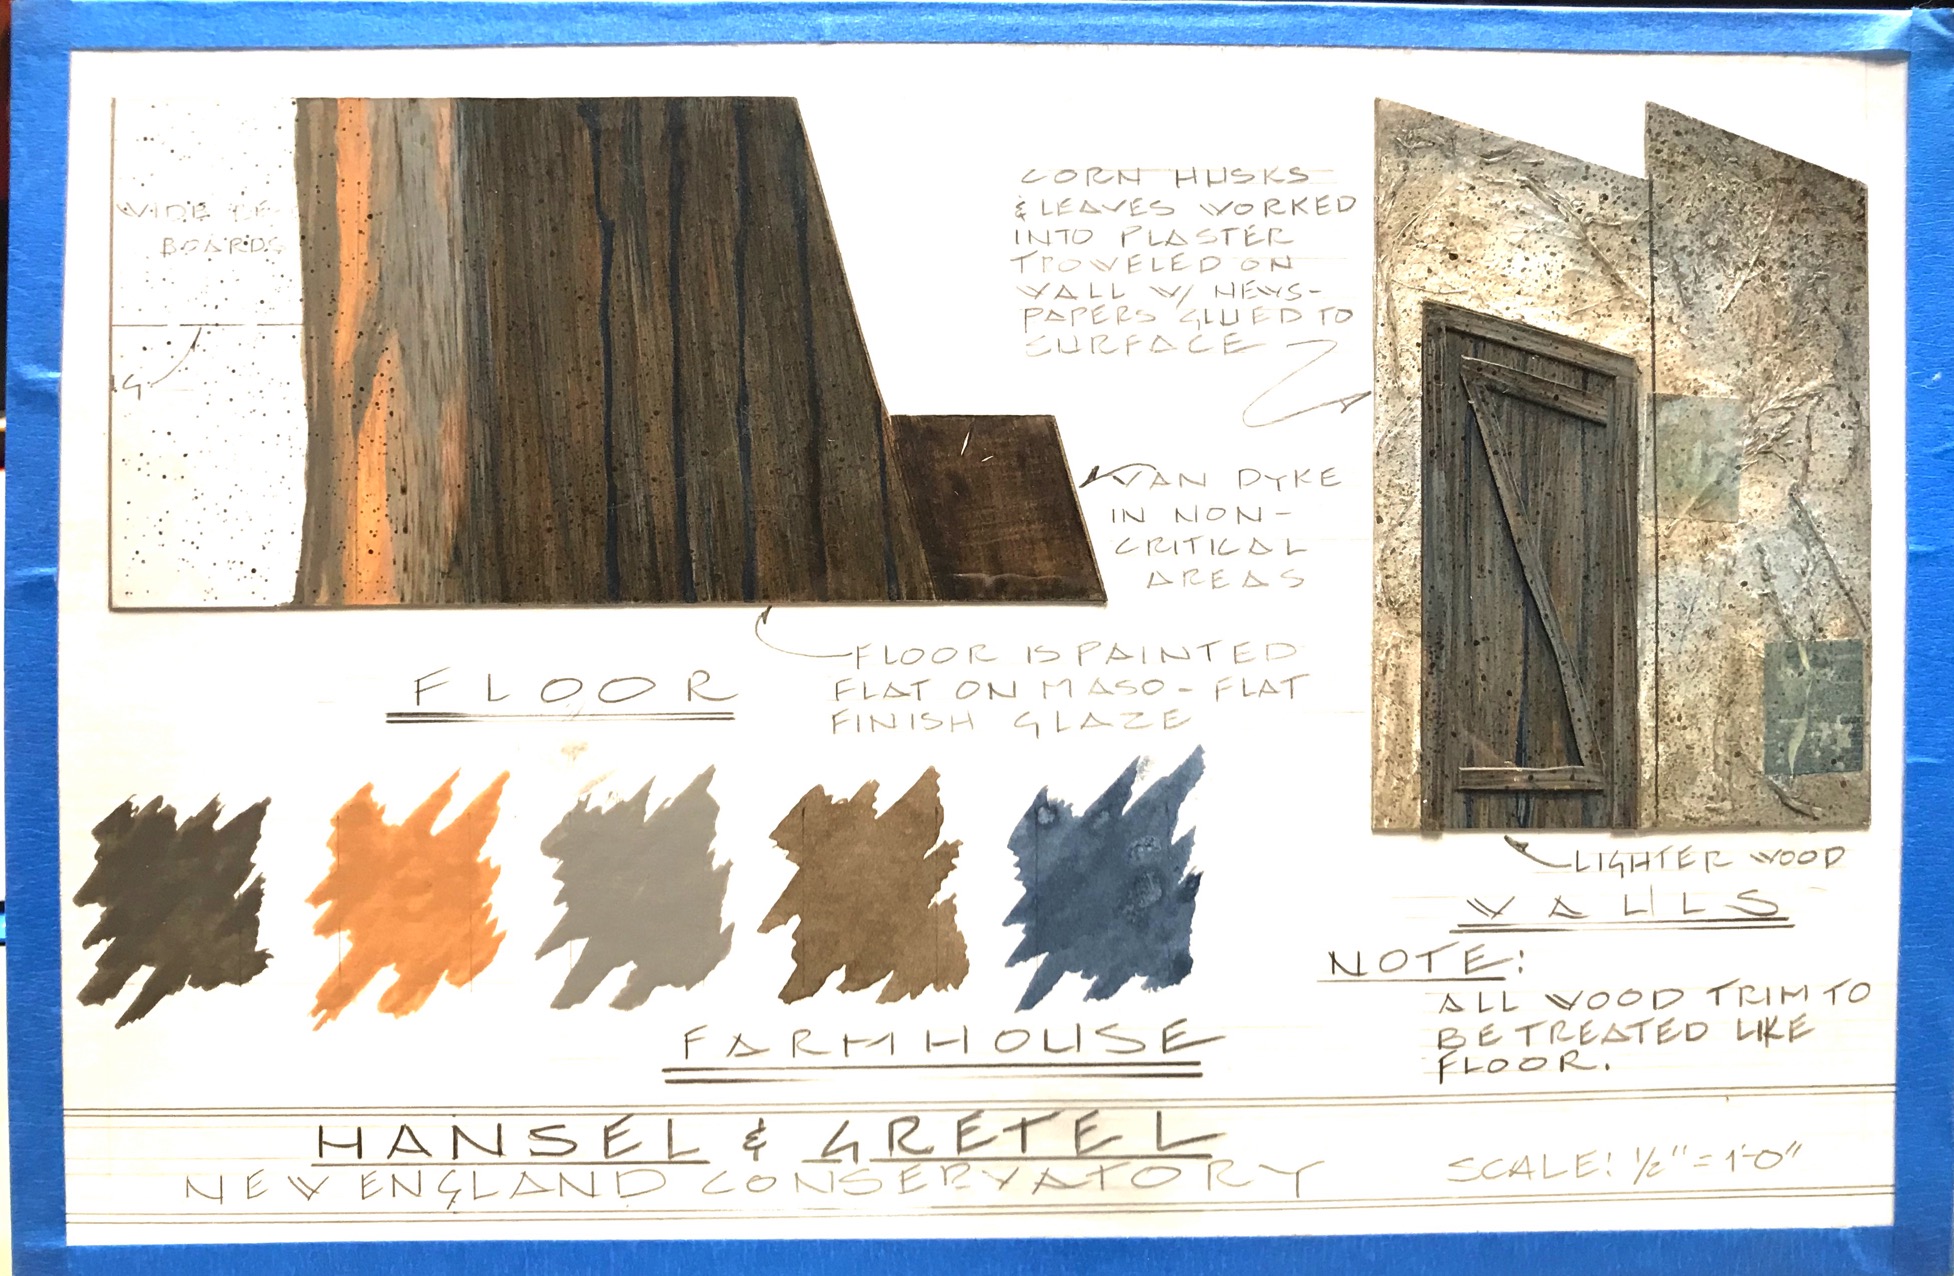 WIDE
BOARDS
CORN HUSKS
& LEAVES WORKED
INTO PLASTER
TROWELED ON
WALL W/ NEWS-
PAPERS GLUED TO
SURFACE
VAN DYKE
IN NON-
CRITICAL
AREAS
FLOOR IS PAINTED
FLAT ON MASO - FLAT
FINISH GLAZE
FLOOR
LIGHTER WOOD
WALLS
NOTE:
ALL WOOD TRIM TO
BE TREATED LIKE
FLOOR.
FARMHOUSE
HANSEL & GRETEL
NEW ENGLAND CONSERVATORY
SCALE: 1/2" = 1'-0"